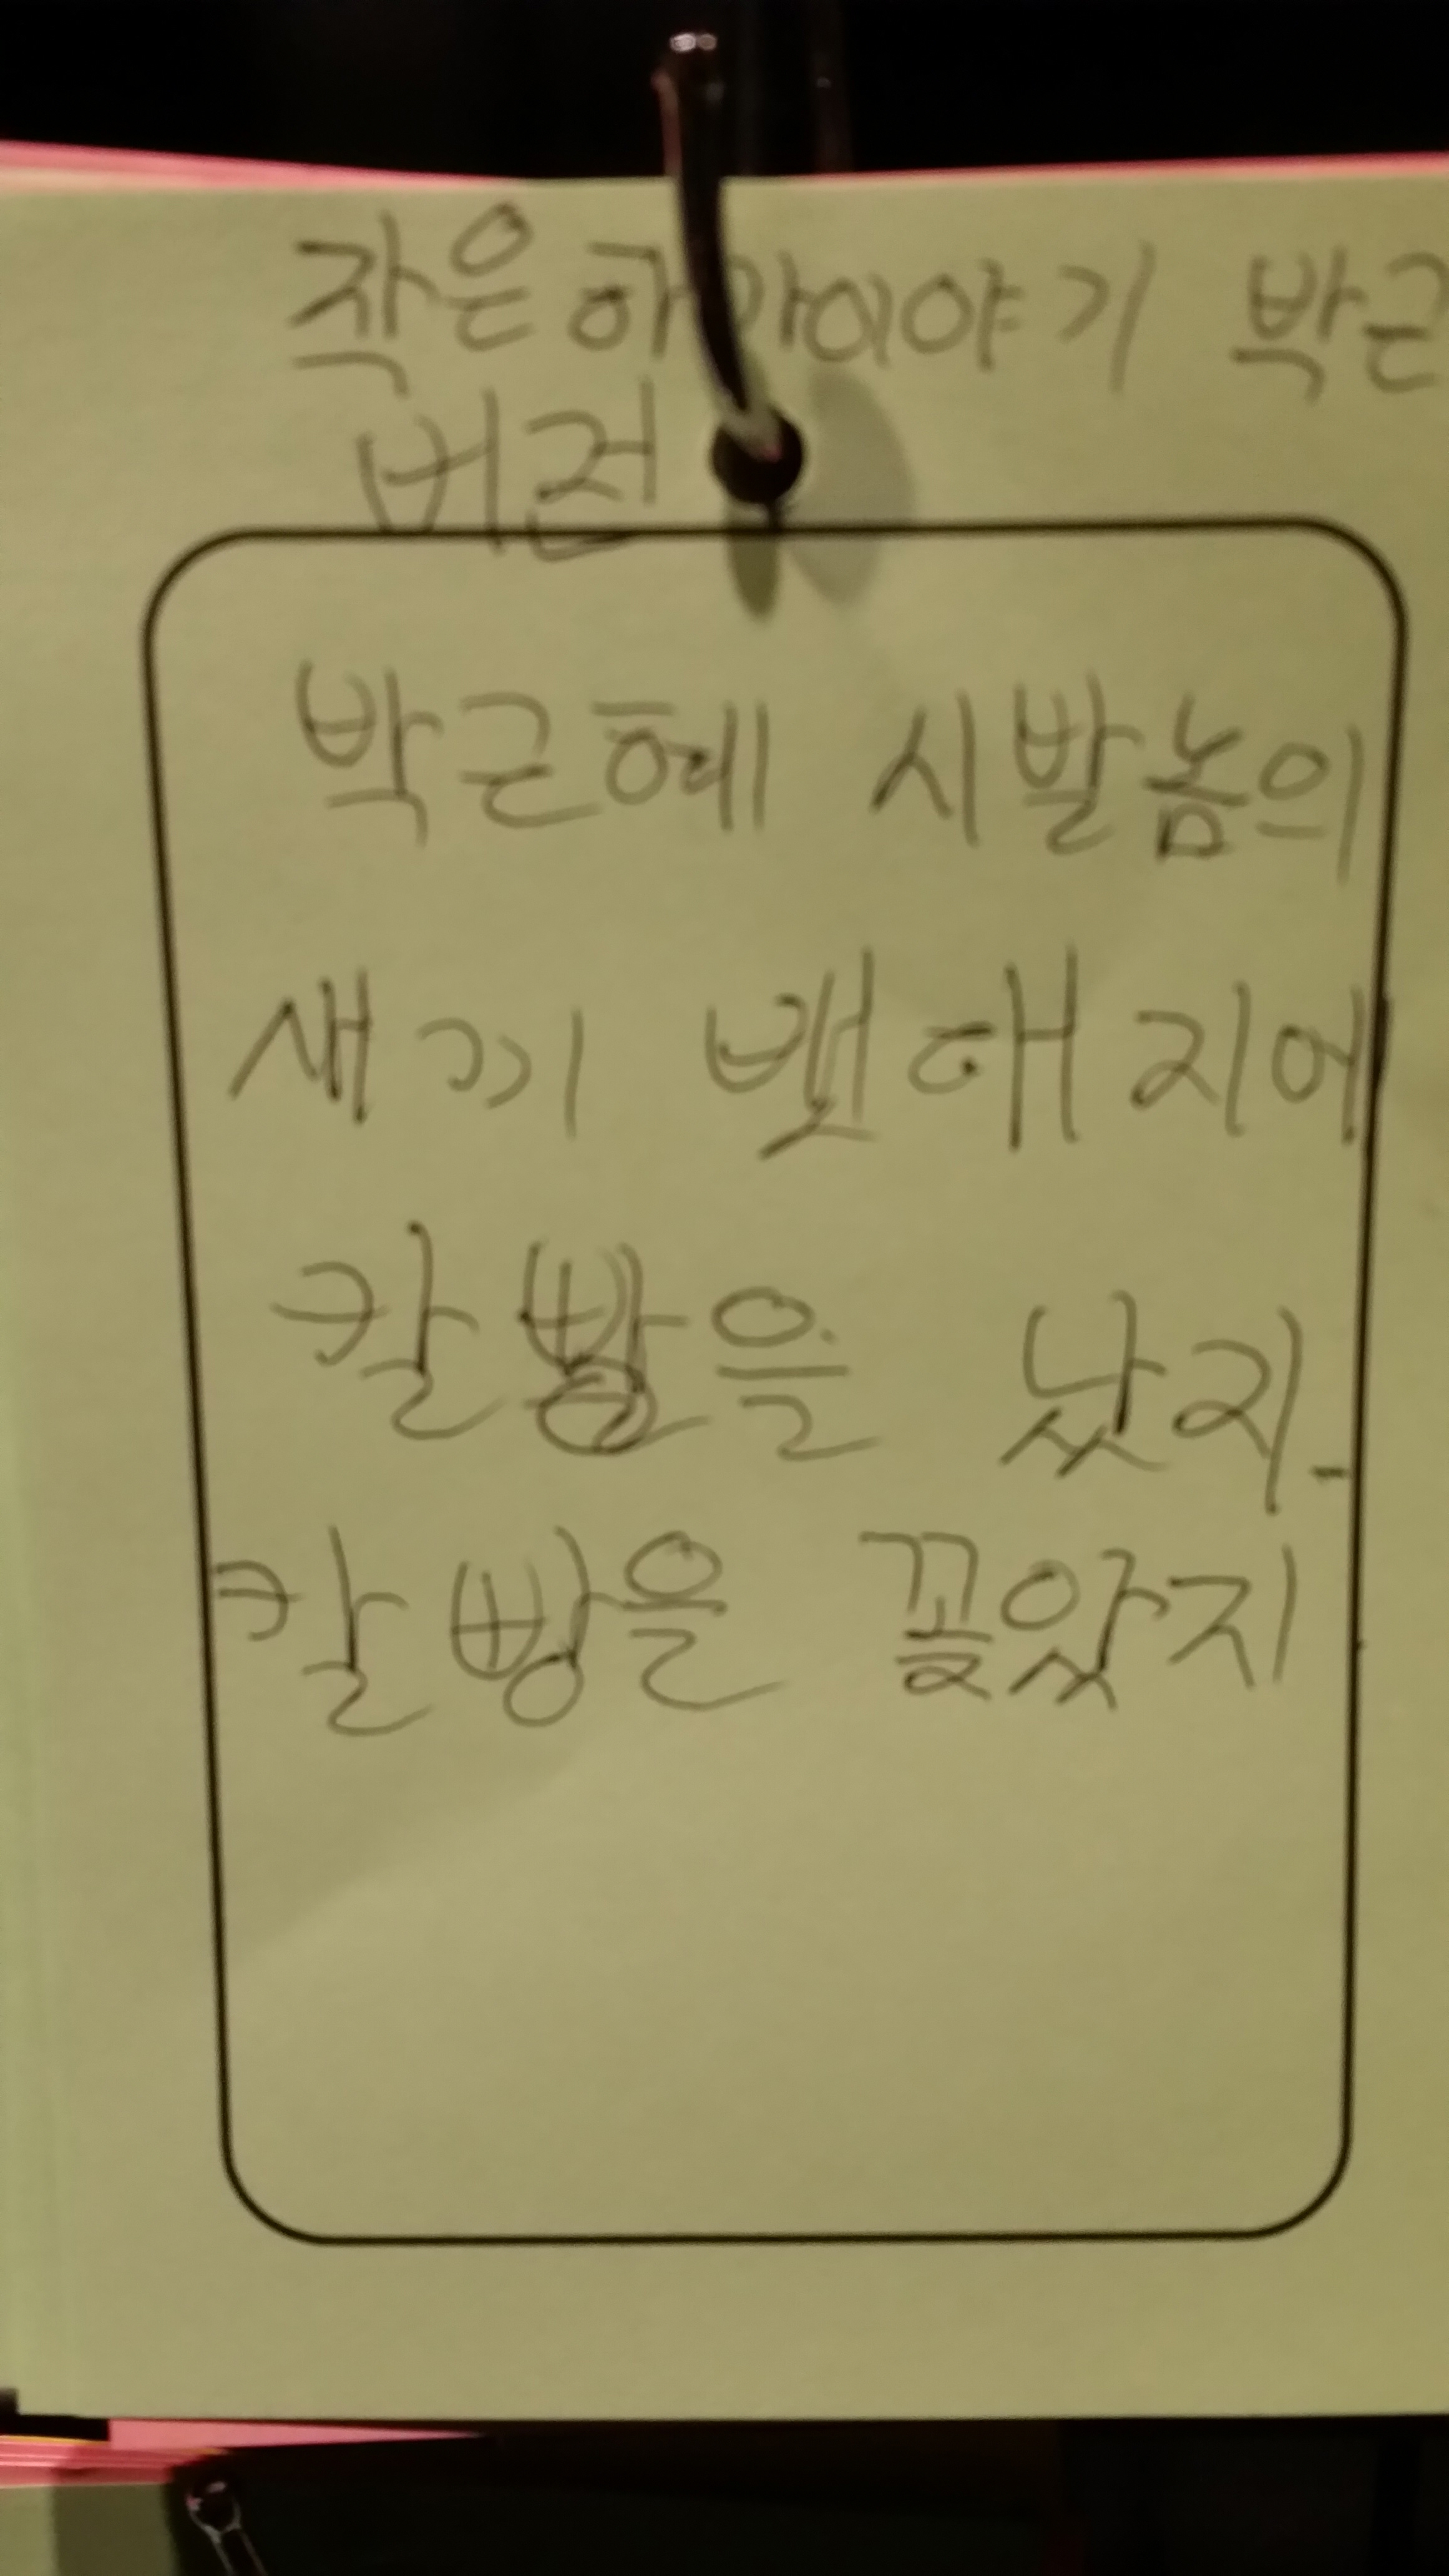 작은하마이야기 박근
버전
박근혜 시발놈의
새끼 뱃대지에
칼빵을 났지-
칼빵을 꽂았지